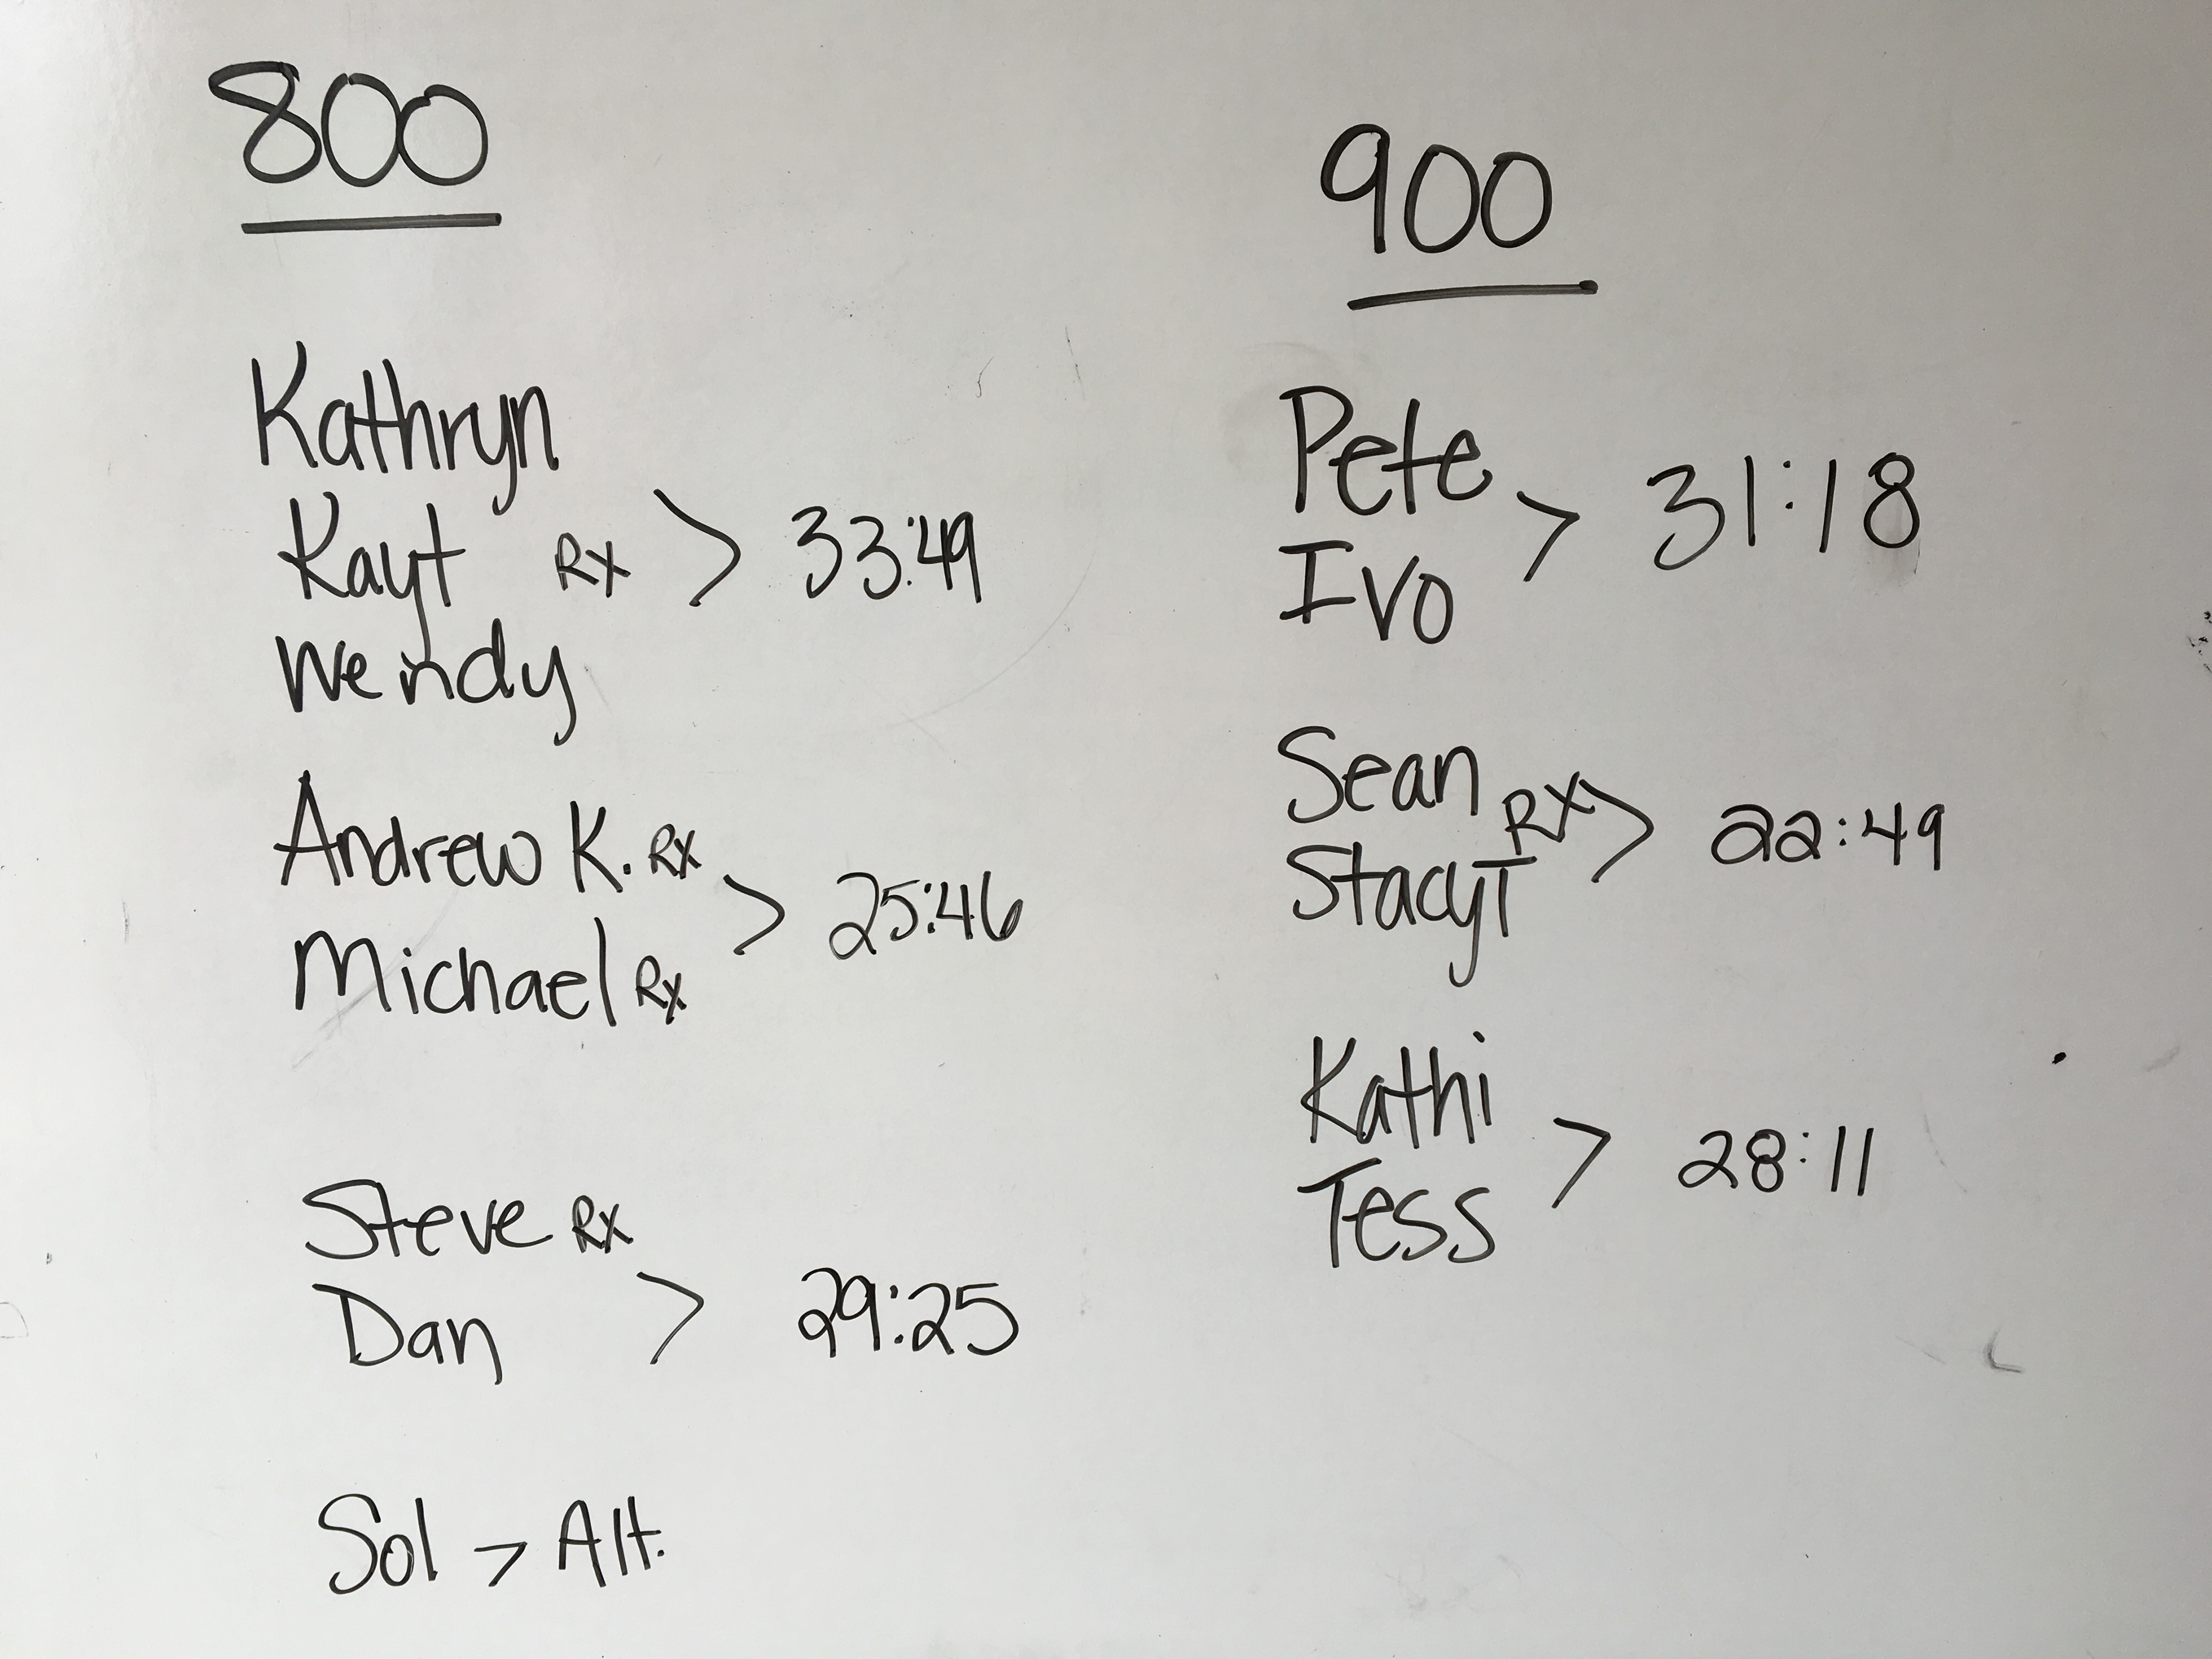 800
Kathryn
Kayt Rx > 33:49
Wendy
Andrew K. Rx
> 25:46
Michael Rx
Steve Rx
Dan > 29:25
Sol > Alt.
900
Pete
> 31:18
Ivo
Sean
Rx > 22:49
Stacy T
Kathi
> 28:11
Tess